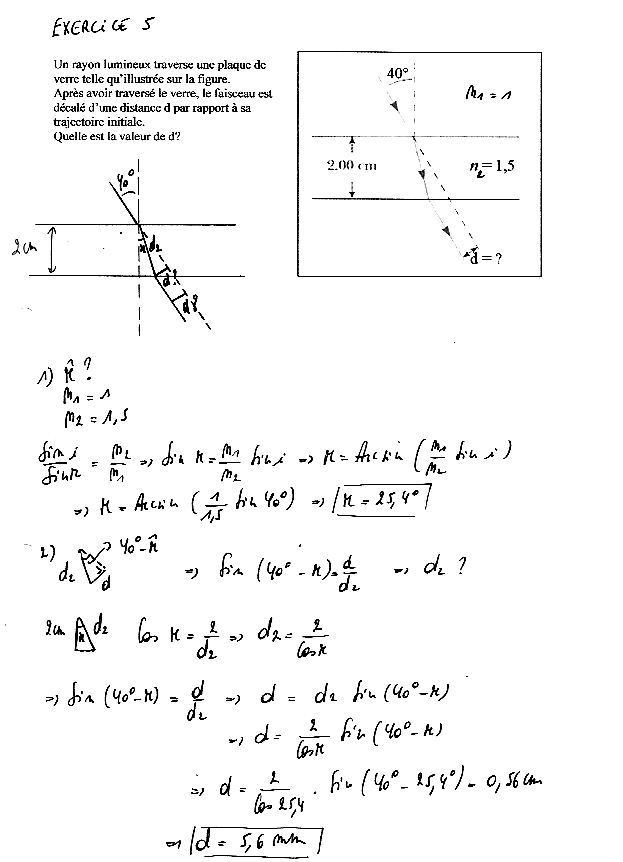 EXERCICE 5
Un rayon lumineux traverse une plaque de
verre telle qu'illustrée sur la figure.
Après avoir traversé le verre, le faisceau est
décalé d'une distance d par rapport à sa
trajectoire initiale.
Quelle est la valeur de d?
40°
n1 = 1
2.00 cm
n2 = 1,5
d = ?
40°
2cm
r
d2
d?
d?
1) r̂ ?
n1 = 1
n2 = 1,5
sin i / sin r = n2 / n1 => sin r = n1/n2 sin i => r = Arcsin (n1/n2 sin i)
=> r = Arcsin (1/1,5 sin 40°) => r = 25,4°
2) d2 d 40° - r̂ => sin (40° - r) = d/d2 => d2 ?
2cm r d2 Cos r = 2/d2 => d2 = 2/Cos r
=> sin (40° - r) = d/d2 => d = d2 sin (40° - r)
=> d = 2/Cos r sin (40° - r)
=> d = 2/Cos 25,4 . sin (40° - 25,4°) = 0,56 cm
=> d = 5,6 mm